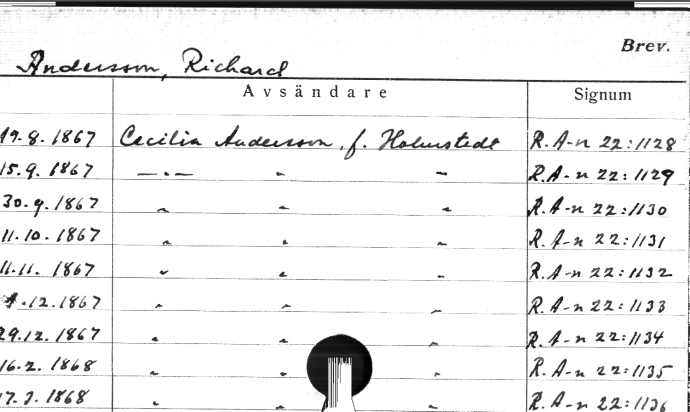 Brev.
Andersson, Richard
Avsändare Signum
19.8.1867 Cecilia Andersson, f. Holmstedt R.A-n 22:1128
15.9.1867 — " — " " R.A-n 22:1129
30.9.1867 " " " R.A-n 22:1130
11.10.1867 " " " R.A-n 22:1131
11.11.1867 " " " R.A-n 22:1132
.12.1867 " " " R.A-n 22:1133
29.12.1867 " " " R.A-n 22:1134
16.2.1868 " " " R.A-n 22:1135
17.3.1868 " " " R.A-n 22:1136